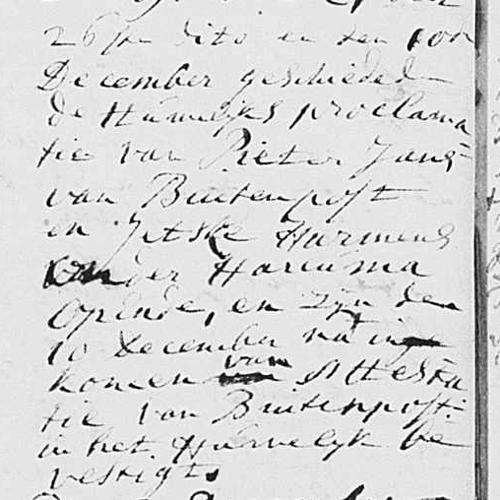 26ste dito en den 10de
December geschieded
de Huwelijks proclama
tie van Pieter Jans
van Buitenpost
en Jitske Harmens
onder Harcuma
Opende, en zijn den
10 December na inge
komen van Attesta
tie van Buitenpost
in het Huwelyk be
vestigt.